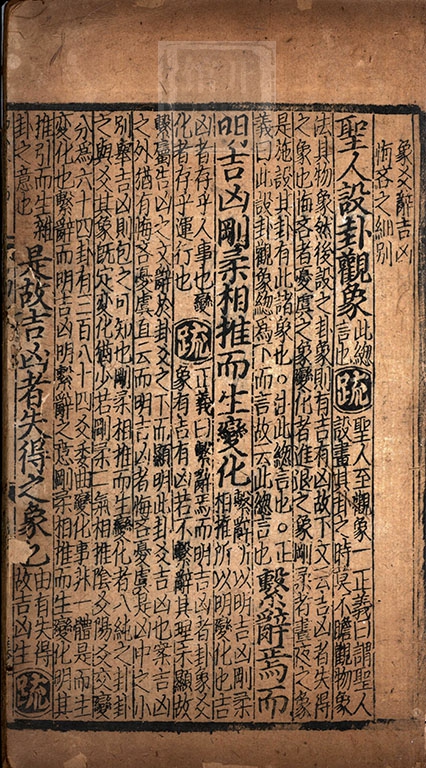 象爻辭吉凶
悔吝之細別
聖人設卦觀象
此總
言也
疏
聖人至觀象 正義曰謂聖人
設畫其卦之時莫不瞻觀物象
法其物象然後設之卦象則有吉有凶故下文云吉凶者失得
之象也悔吝者憂虞之象變化者進退之象剛柔者晝夜之象
是施設其卦有此諸象也○此總言也○正
義曰此設卦觀象總為下而言故云此總言也
繫辭焉而
明吉凶剛柔相推而生變化
繫辭所以明吉凶剛柔
相推所以明變化也吉
凶者存乎人事也變
化者存乎運行也
疏
正義曰繫辭焉而明吉凶者卦象爻
象有吉有凶若不繫辭其理未顯故
繫屬吉凶之文辭於卦爻之下而顯明此卦爻吉凶也案吉凶
之外猶有悔吝憂虞直云而明吉凶者悔吝憂虞是凶中之小
別舉吉凶則包之可知也剛柔相推而生變化者八純之卦卦
之與爻其象既定變化猶少若剛柔二氣相推陰爻陽爻交變
分為六十四卦有三百八十四爻委曲變化事非一體是而生
變化也繫辭而明吉凶明繫辭之意剛柔相推而生變化明其
推引而生雜
卦之意也
是故吉凶者失得之象也
由有失得
故吉凶生
疏